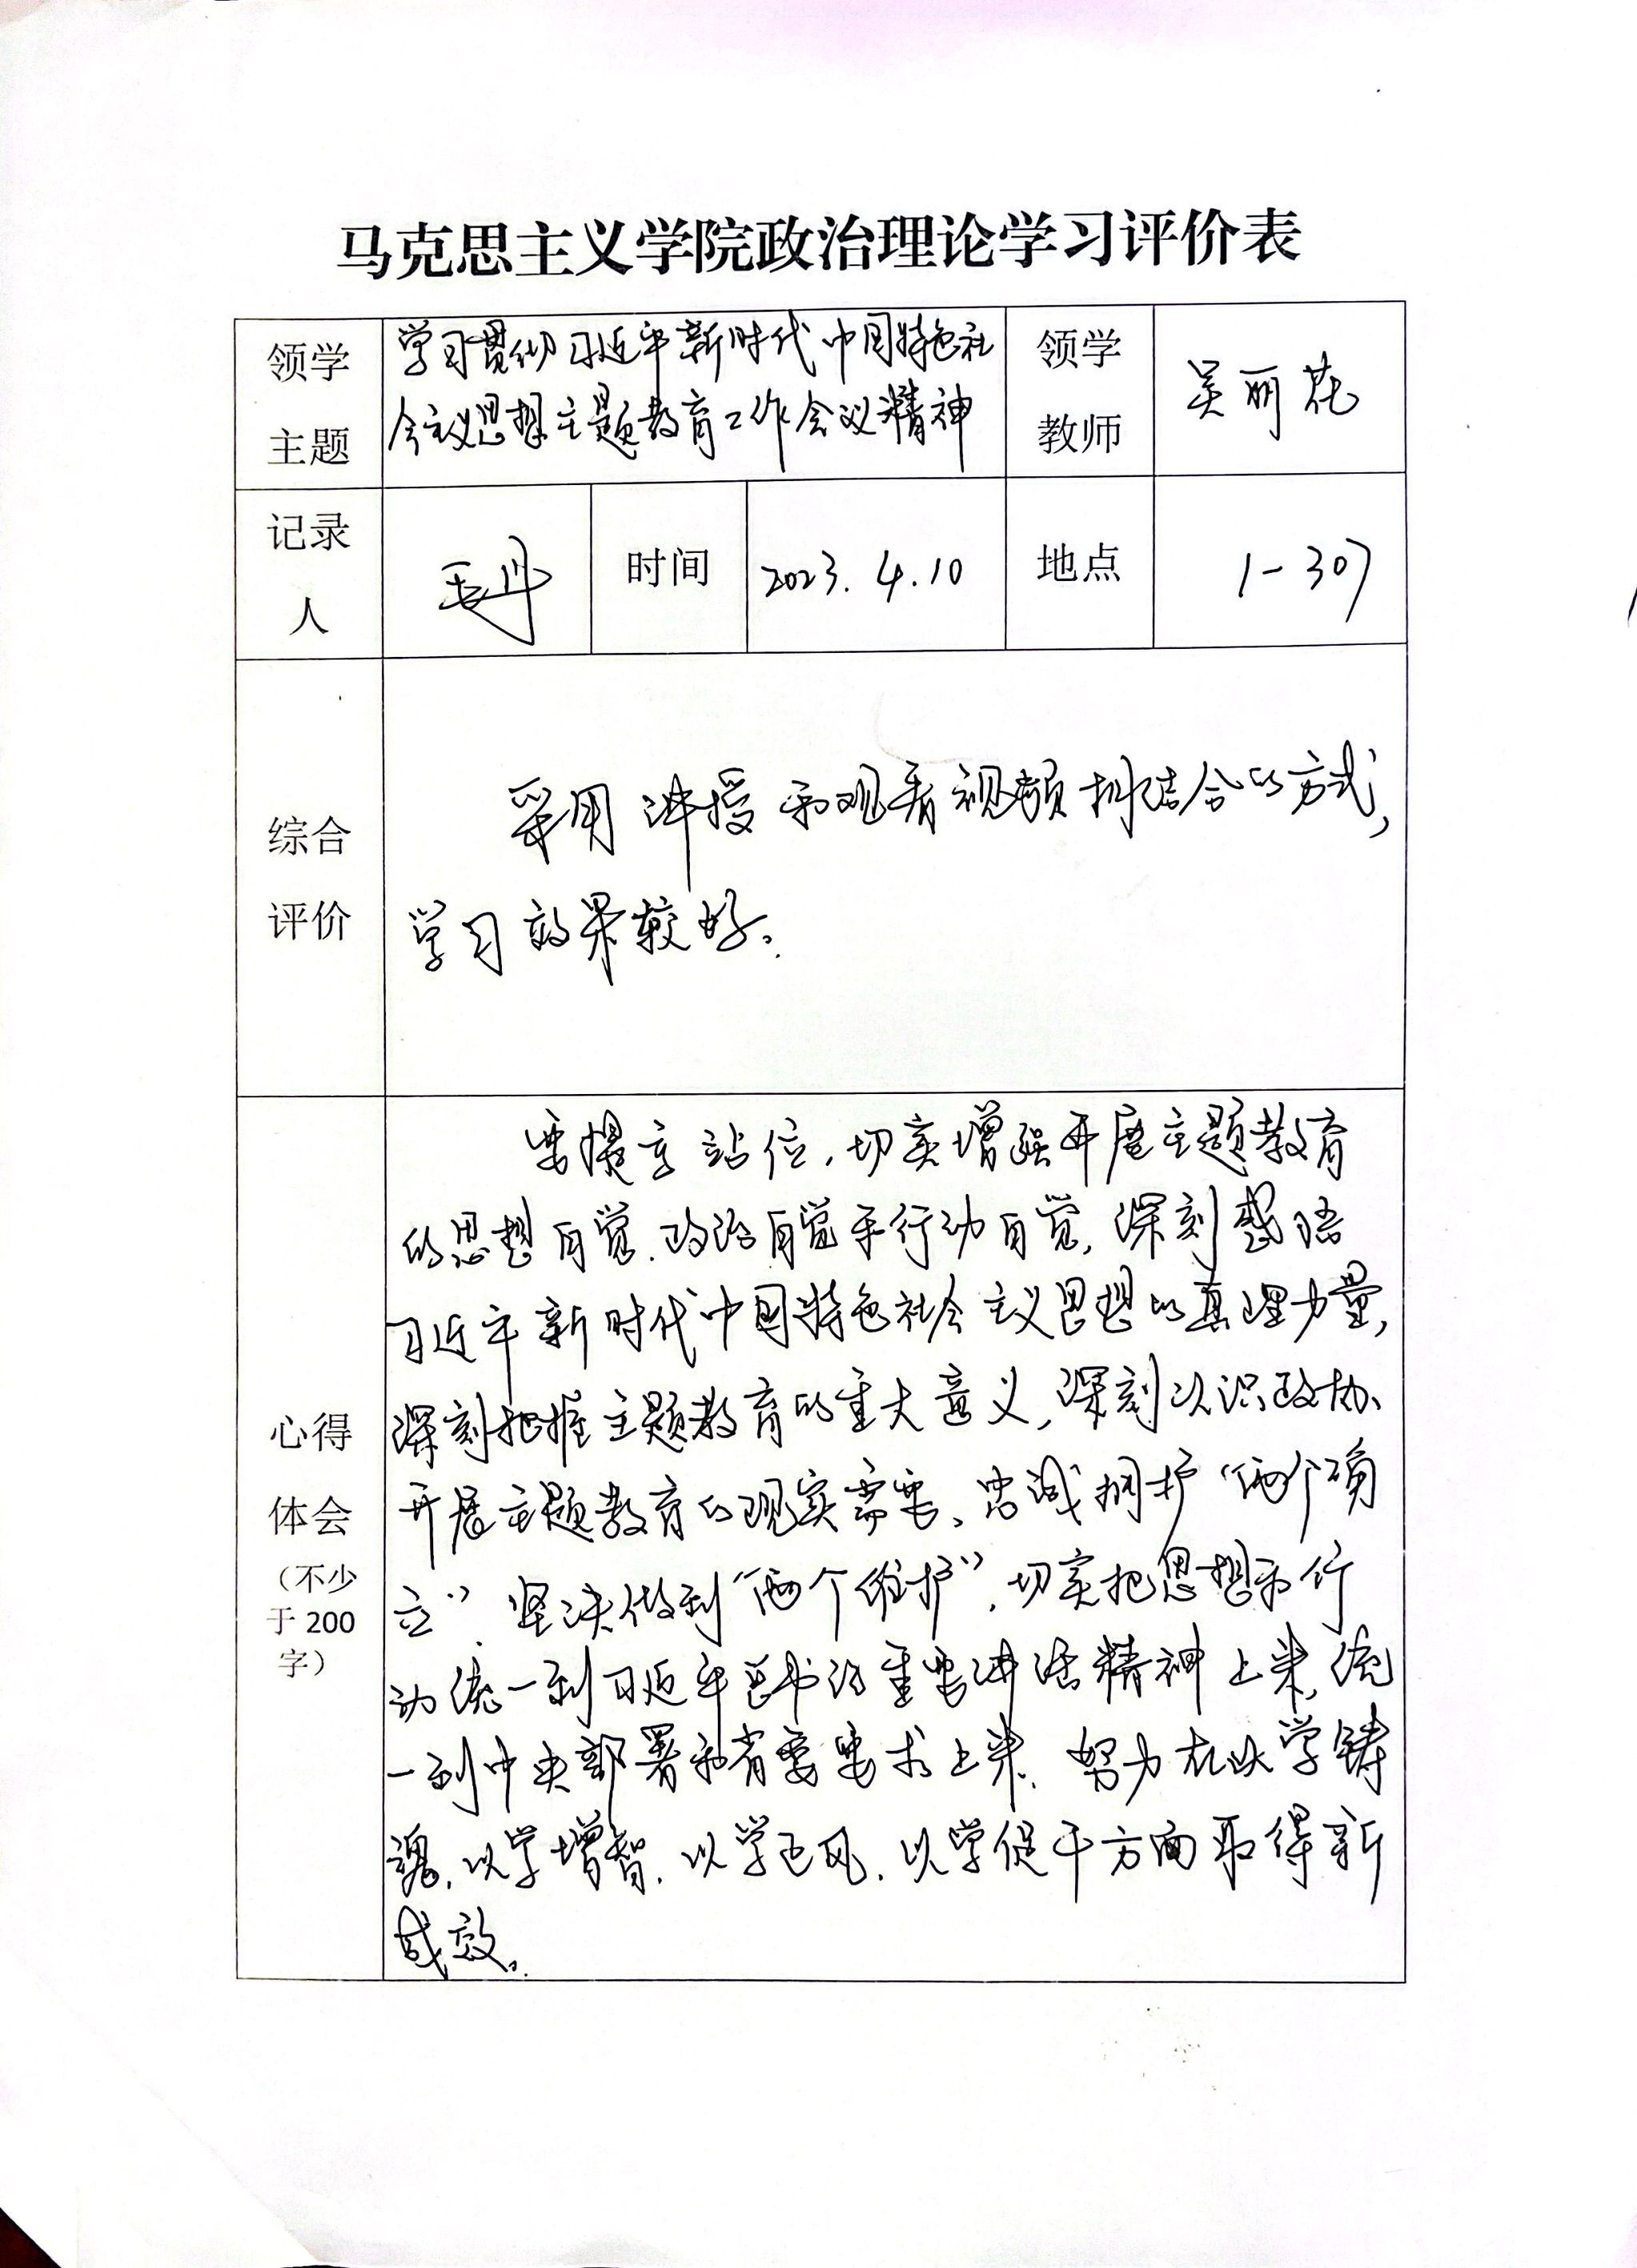 马克思主义学院政治理论学习评价表
领学主题
学习贯彻习近平新时代中国特色社
会主义思想主题教育工作会议精神
领学教师
吴丽花
记录人
时间
2023.4.10
地点
1-307
综合评价
采用讲授和观看视频相结合的方式,
学习效果较好。
心得体会(不少于200字)
要提高站位,切实增强开展主题教育
的思想自觉、政治自觉和行动自觉,深刻感悟
习近平新时代中国特色社会主义思想的真理力量,
深刻把握主题教育的重大意义,深刻认识政协
开展主题教育的现实需要、忠诚拥护“两个确
立”、坚决做到“两个维护”,切实把思想和行
动统一到习近平总书记重要讲话精神上来,统
一到中央部署和省委要求上来、努力在以学铸
魂、以学增智、以学正风、以学促干方面取得新
成效。